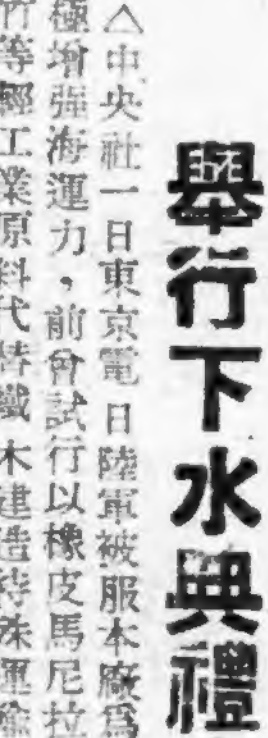 舉行下水典禮
△中央社一日東京電日陸軍被服本廠爲
極增強海運力,前曾試行以橡皮馬尼拉
竹等輕工業原料代替鐵木建造特殊運輸